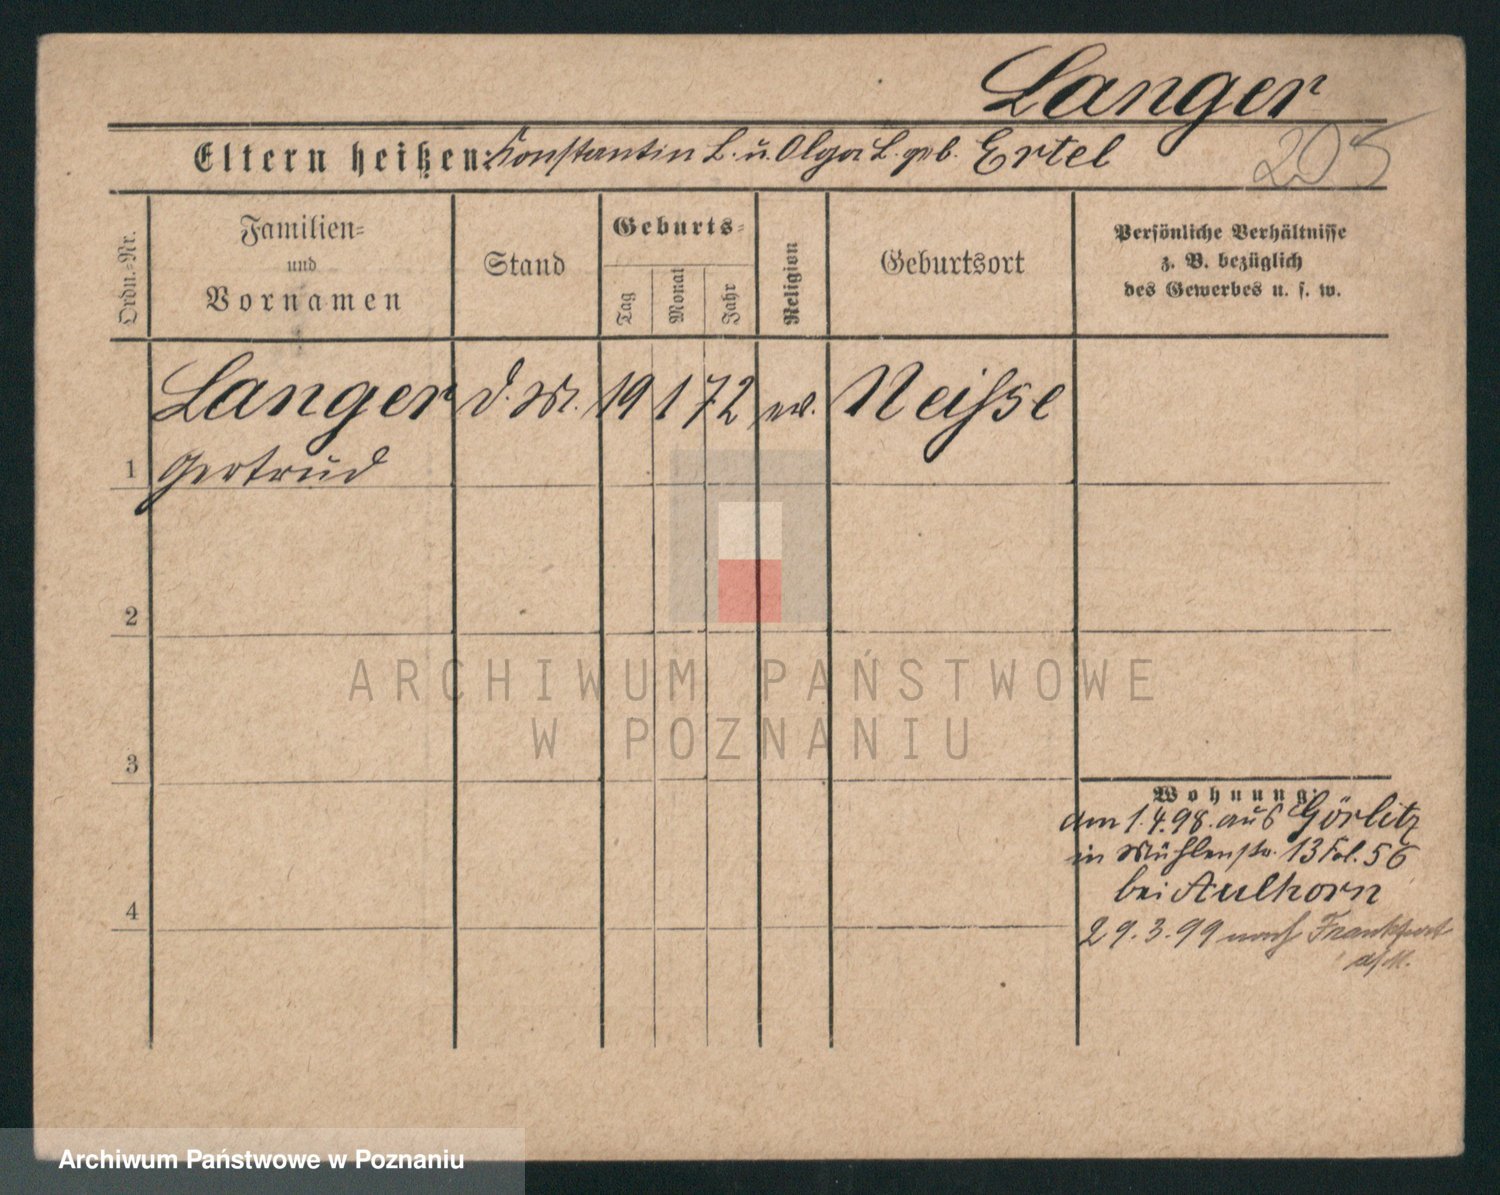 Langer
Eltern heißen: Konstantin L. u. Olga L. geb. Ertel
205
Ordn.-Nr.
Familien- und Vornamen
Stand
Geburts-
Tag
Monat
Jahr
Religion
Geburtsort
Persönliche Verhältnisse
z. B. bezüglich
des Gewerbes u. s. w.
Langer d. 19 1 72 Neisse
1 Gertrud
2
ARCHIWUM PAŃSTWOWE
W POZNANIU
3
Wohnung:
am 1.4.98. aus Görlitz
in Mühlenstr. 13 Fol. 56
bei Aulhorn
4
29.3.99 nach Frankfurt
a/M.
Archiwum Państwowe w Poznaniu